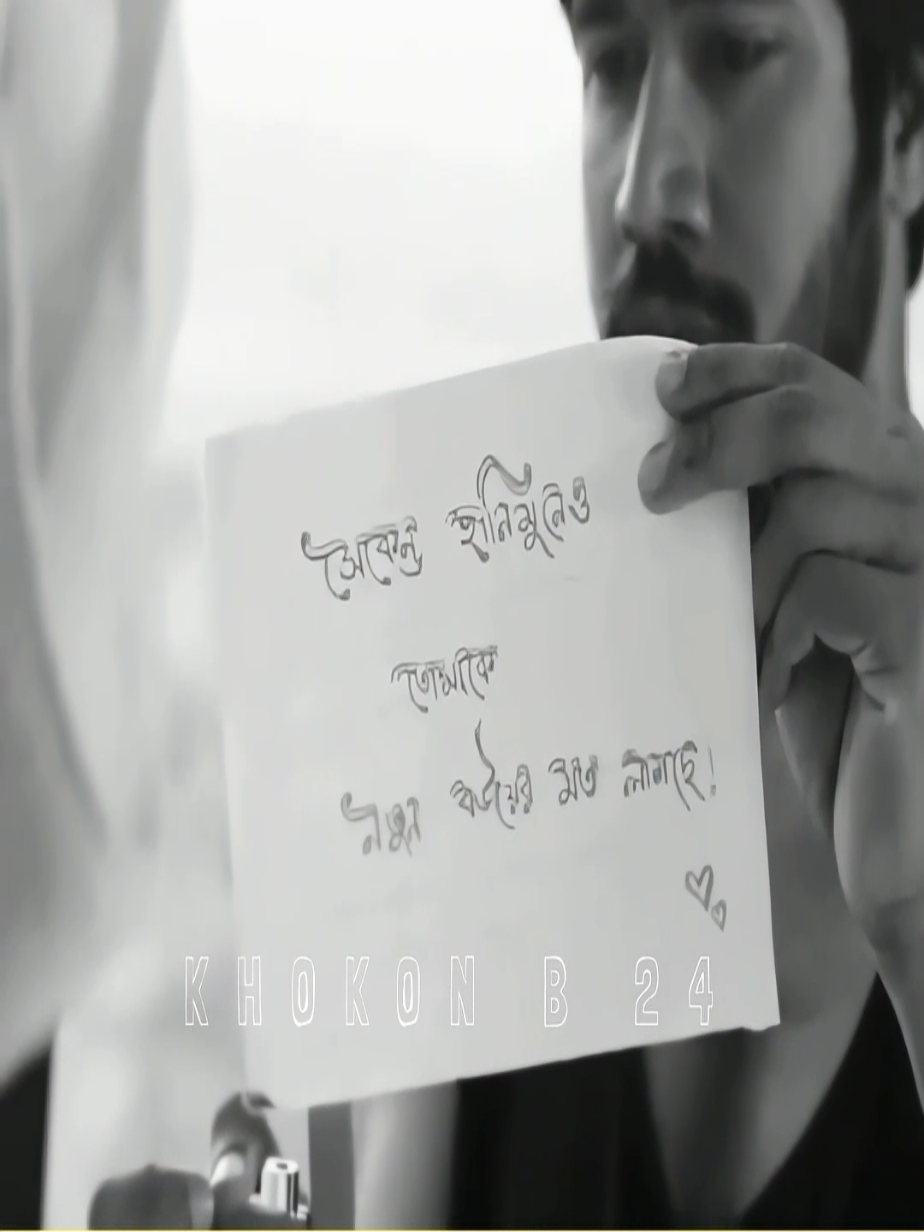 সেকেন্ড হানিমুনেও
তোমাকে
নতুন বউয়ের মত লাগছে!
KHOKON B 24